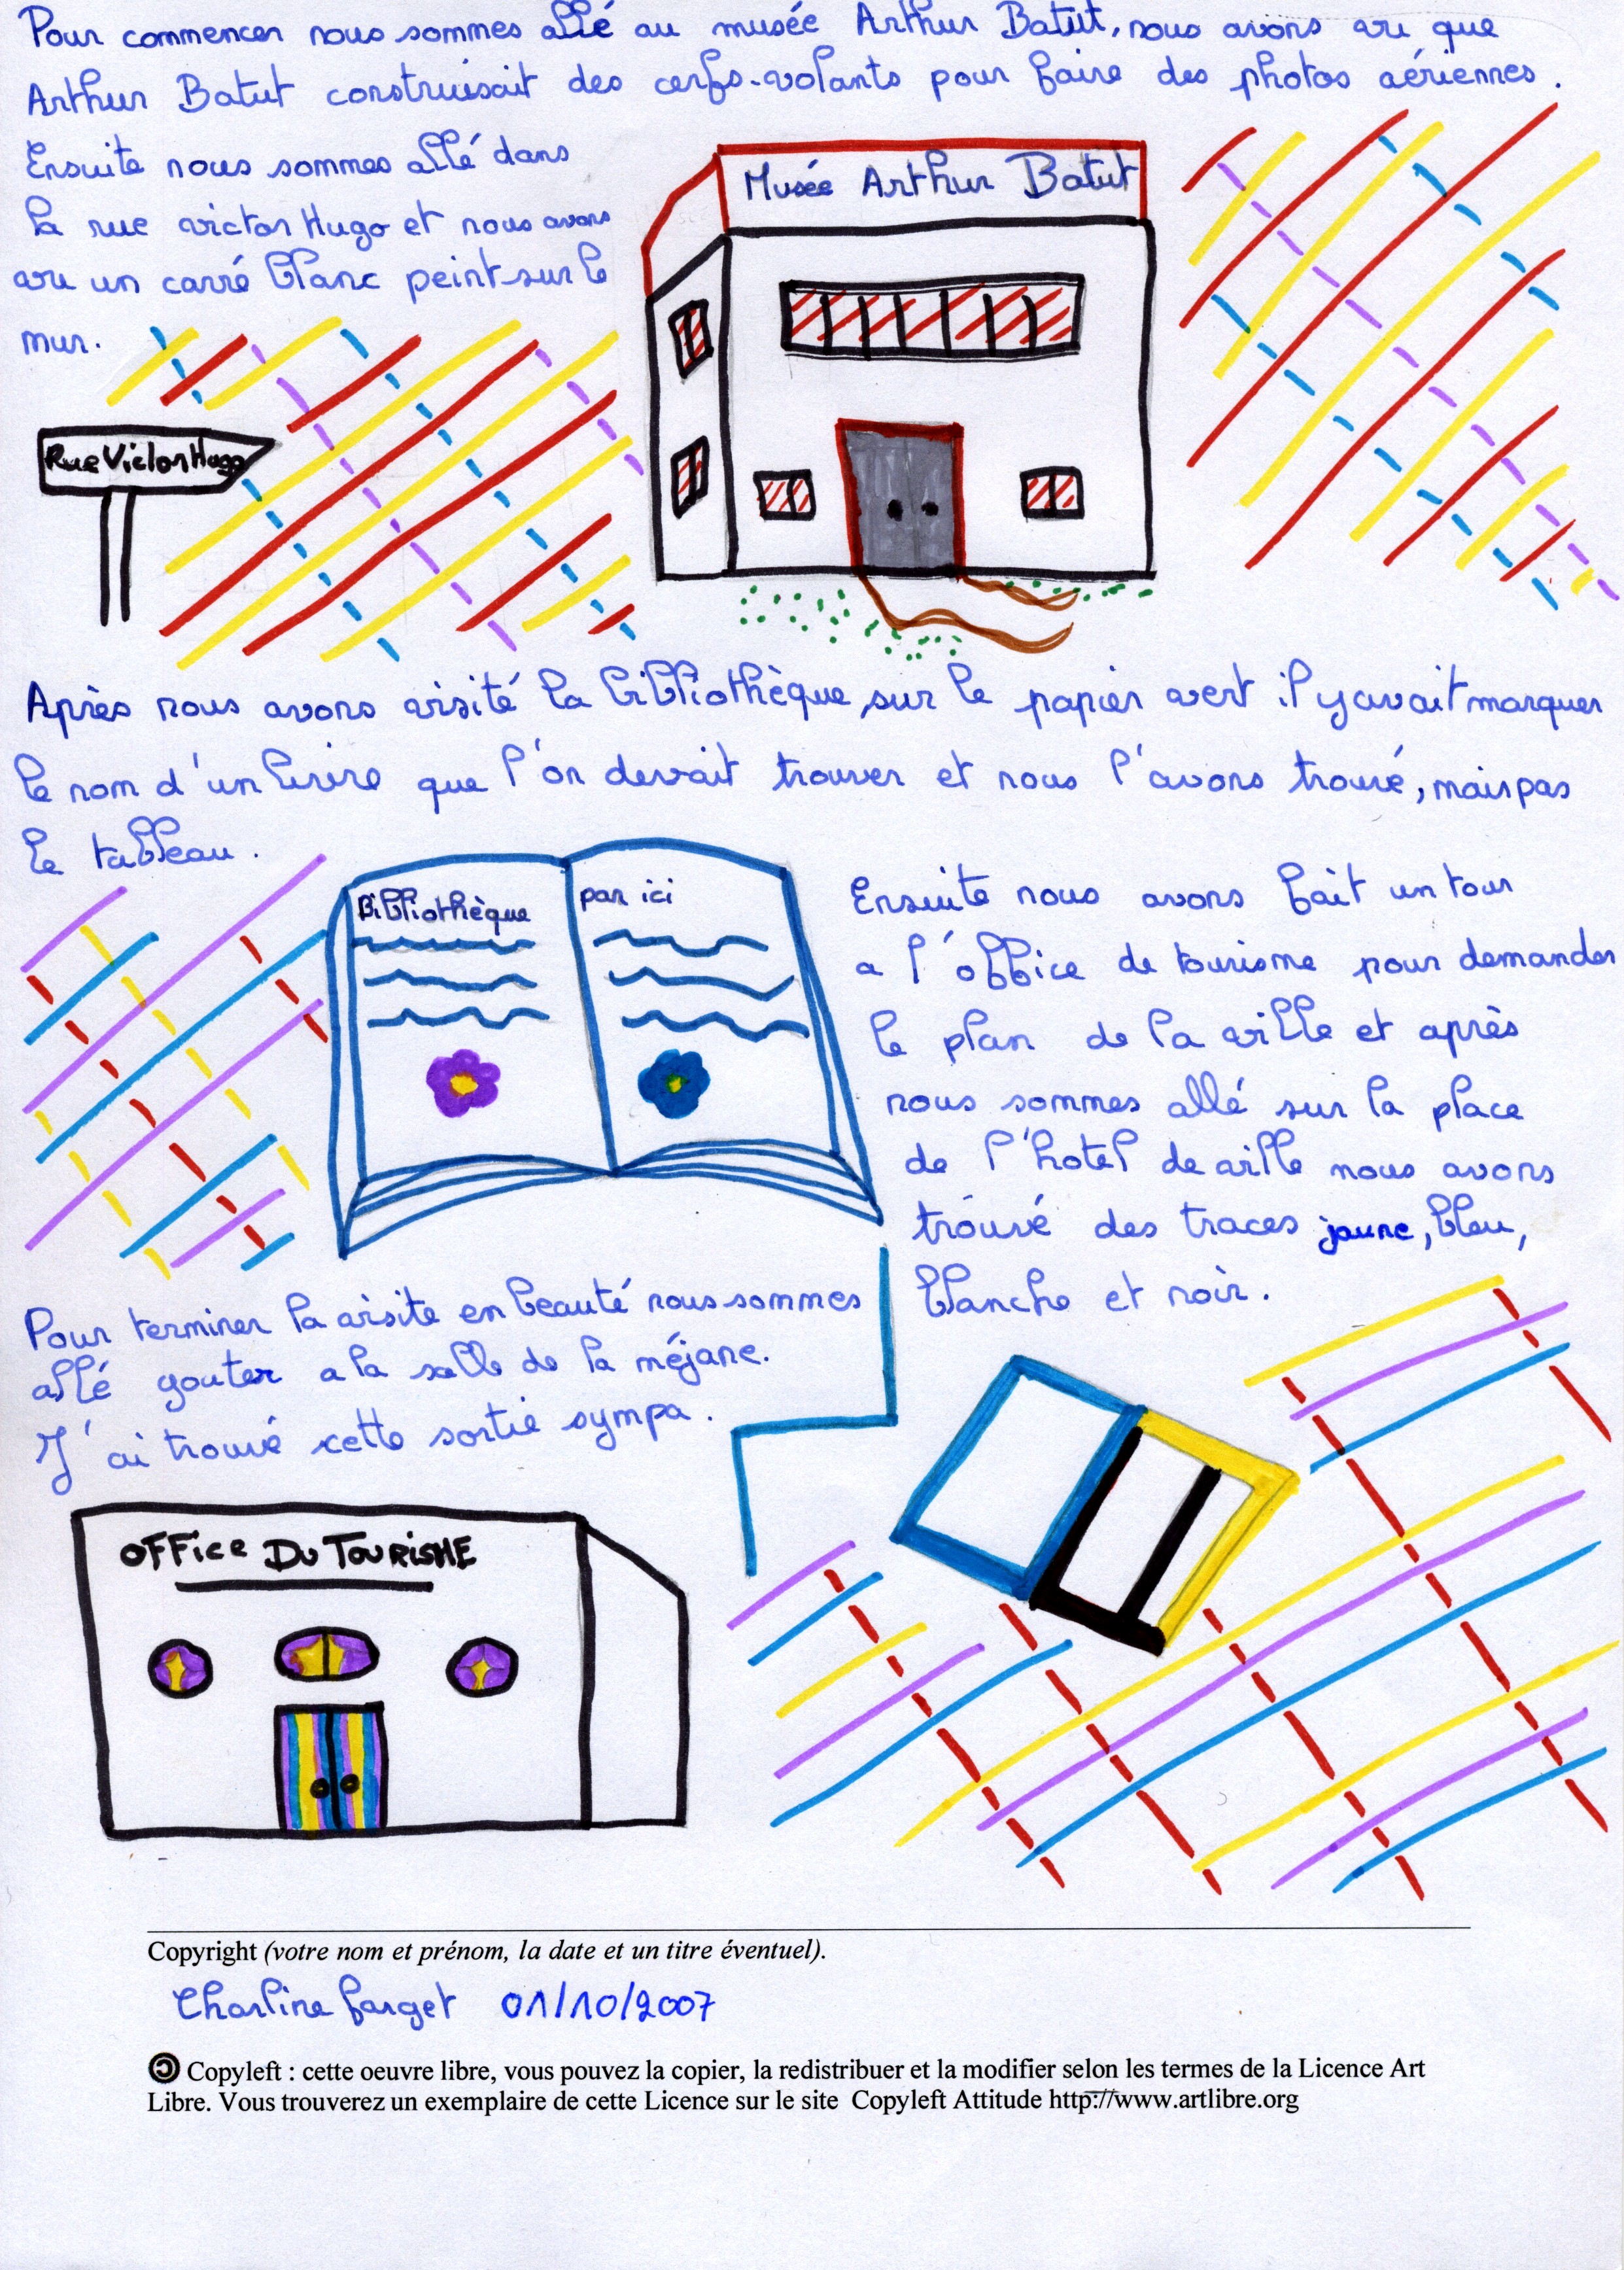 Pour commencer nous sommes allé au musée Arthur Batut, nous avons vu que
Arthur Batut construisait des cerfs-volants pour faire des photos aériennes.
Ensuite nous sommes allé dans
la rue victor Hugo et nous avons
vu un carré blanc peint sur le
mur.
Musée Arthur Batut
Rue Victor Hugo
Après nous avons visité la bibliothèque, sur le papier vert il y avait marquer
le nom d'un livre que l'on devait trouver et nous l'avons trouvé, mais pas
le tableau.
Bibliothèque
par ici
Ensuite nous avons fait un tour
a l'office de tourisme pour demander
le plan de la ville et après
nous sommes allé sur la place
de l'hotel de ville nous avons
trouvé des traces jaune, bleu,
blanche et noir.
Pour terminer la visite en beauté nous sommes
allé gouter a la salle de la méjane.
J'ai trouvé cette sortie sympa.
OFFice Du TOURISME
Copyright (votre nom et prénom, la date et un titre éventuel).
Charline farget 01/10/2007
Copyleft : cette oeuvre libre, vous pouvez la copier, la redistribuer et la modifier selon les termes de la Licence Art
Libre. Vous trouverez un exemplaire de cette Licence sur le site Copyleft Attitude http://www.artlibre.org